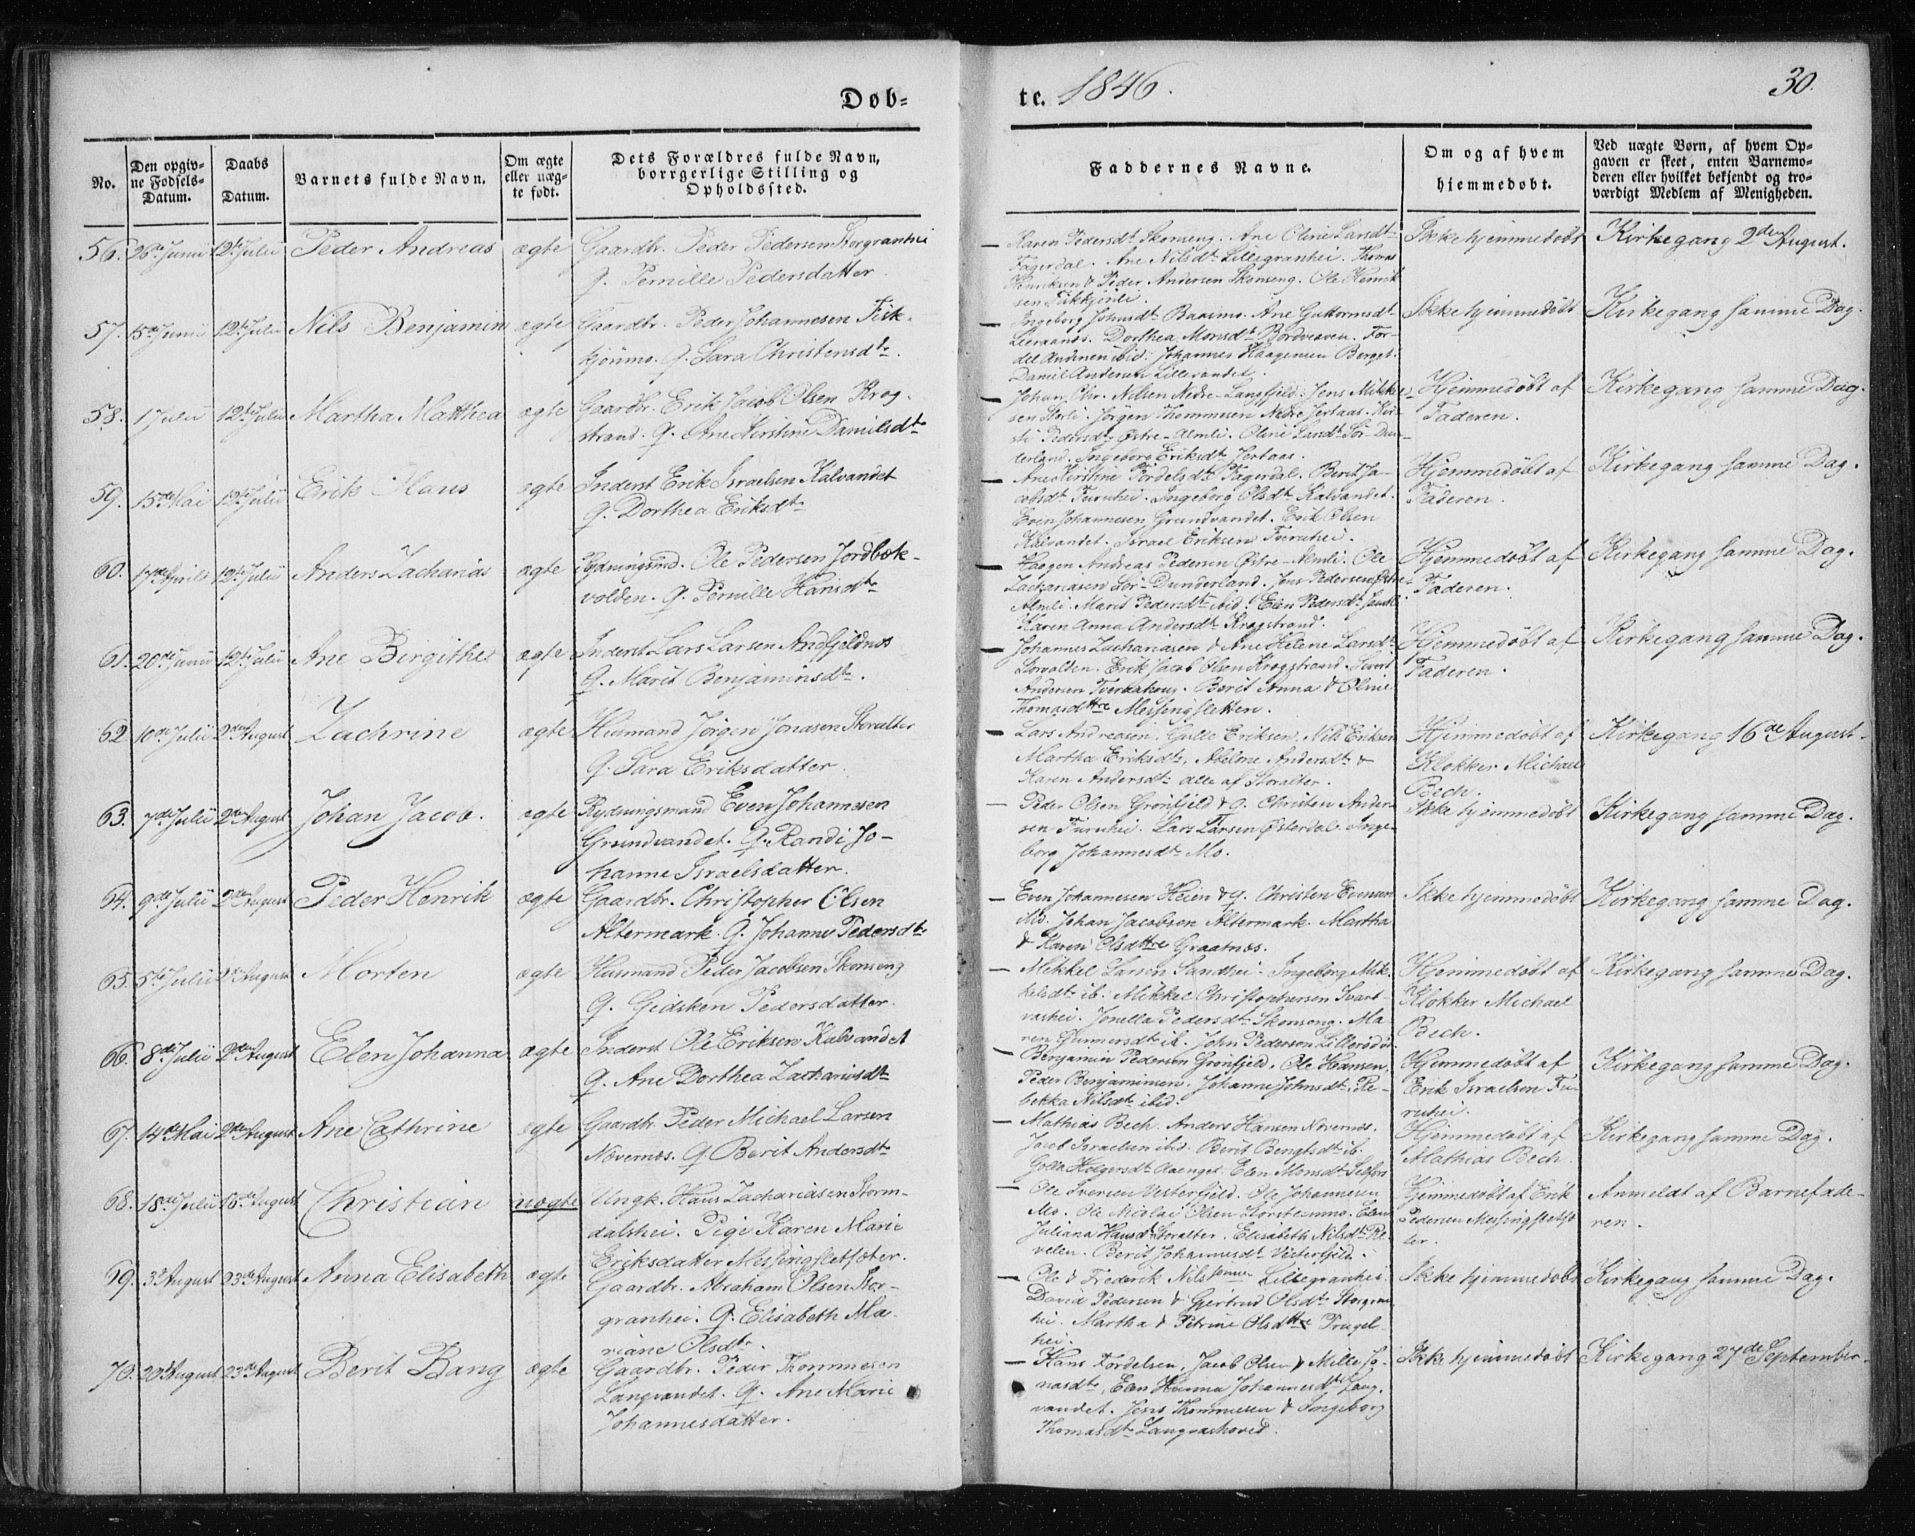 Døb-
te. 1846.
30.
No.
Den opgiv-
ne Fødsels-
Datum.
Daabs
Datum.
Barnets fulde Navn.
Om ægte
eller uæg-
te født.
Dets Forældres fulde Navn,
borrgerlige Stilling og
Opholdssted.
Faddernes Navne.
Om og af hvem
hjemmedøbt.
Ved uægte Børn, af hvem Op-
gaven er skeet, enten Barnemo-
deren eller hvilket bekjendt og tro-
værdigt Medlem af Menigheden.
56. 26de Junii 12te Julii Peder Andreas ægte Gaardbr. Peder Pedersen Storgranhei
G. Pernille Pedersdatter.
Karen Pedersdt. Skonseng. Ane Oline Larsdt.
Fagerdal. Ane Nilsdt. Lillegranhei. Thomas
Henriksen & Peder Andersen Skonseng. Ole Henrik
sen
Ikke hjemmedøbt
Kirkegang 2den August.
57. 15de Junii 12te Julii Nils Benjamin ægte Gaardbr. Peder Johannesen Fisk-
kjønmo. G. Sara Christensdtr.
Ingeborg Johnsdt. Ane Guttormsdt.
Dorthea Monsdt. For-
del Andersen ibid. Johannes Haagensen
Daniel Andersen Lillevandet.
Ikke hjemmedøbt
Kirkegang samme Dag.
58. 1 Julii 12te Julii Martha Matthea ægte Gaardbr. Erik Jacob Olsen Krog
strand. G. Ane Kirstine Danielsdt.
Johan Chr. Nilsen Nedre-Langfjeld. Jens Mikkel
sen Storli. Jørgen Thommesen Nedre Jertaas. Kir-
sti Pedersdt. Østre-Almli. Oline Larsdt. Sør-Dun-
derland. Ingeborg Eriksdt. Jertaas.
Hjemmedøbt af
Faderen.
Kirkegang samme Dag.
59. 15de Mai 12te Julii Erik Hans ægte Inderst Erik Israelsen Kalvandet
G. Dorthea Eriksdtr
Ane Kirstine Fordelsdt. Fagerdal. Berit Ja-
cobsdt. Furuhei. Ingeborg Olsdt. Kalvandet.
Even Johannesen Grundvandet. Erik Olsen
Kalvandet. Israel Eriksen Furuhei.
Hjemmedøbt af
Faderen.
Kirkegang samme Dag.
60. 17de April 12te Julii Anders Zacharias ægte Rydningsmd. Ole Pedersen Jordbæk-
volden. G. Pernille Hansdtr
Haagen Andreas Pedersen Østre-Almli. Ole
Zachariasen Sør-Dunderland. Jens Pedersen Østre
Almli. Marit Pedersdt. ibid. Elen Pedersdt.
Karen Anna Andersdt. Krogstrand.
Hjemmedøbt af
Faderen.
Kirkegang samme Dag.
61. 20de Junii 12te Julii Ane Birgithe ægte Inderst Lars Larsen Andfjeldnæs
G. Marit Benjaminsdtr.
Johannes Zachariasen & Ane Helene Larsdt.
Storvolden. Erik Jacob Olsen Krogstrand. Sivert
Andersen Tveraahaug. Berit Anna & Oline
Thomasdttre Messingsletten.
Hjemmedøbt af
Faderen.
Kirkegang samme Dag.
62 10de Julii 2den August Zachrine ægte Husmand Jørgen Jonasen Storalter
G. Sara Eriksdatter.
Lars Andreasen. Gulle Eriksen. Nils Eriksen
Martha Eriksdt. Abeline Andersdt. &
Karen Andersdt. alle af Storalter.
Hjemmedøbt af
Klokker Michael
Bech.
Kirkegang 16de August.
63. 7de Julii 2den August Johan Jacob. ægte Rydningsmand Even Johannesen
Grundvandet. G. Randi Jo-
hanne Israelsdatter.
Peder Olsen Grønfjeld & G. Christen Ander-
sen Furuhei. Lars Larsen Østerdal. Inge-
borg Johannesdt. Mo.
Ikke hjemmedøbt
Kirkegang samme Dag.
64. 9de Julii 2den August Peder Henrik ægte Gaardbr. Christopher Olsen
Altermark. G. Johanne Pedersdtr
Even Johannesen Heien & G. Christen Evensen
ibid. Johan Jacobsen Altermark. Martha
& Karen Olsdttre Graatnæs.
Ikke hjemmedøbt
Kirkegang samme Dag.
65. 5te Julii 2den August Morten ægte Husmand Peder Jacobsen Skonseng
G. Gidsken Pedersdatter.
Mikkel Larsen Sandhei. Ingeborg Mik-
kelsdt. ib. Mikkel Christophersen Svart-
vashei. Jonella Pedersdt. Skonseng. Ma-
ren Gunnersdt. ib. John Pedersen
Hjemmedøbt af
Klokker Michael
Bech.
Kirkegang samme Dag.
66. 8de Julii 2den August Elen Johanna ægte Inderst Ole Eriksen Kalvandet
G. Ane Dorthea Zachariasdt.
Benjamin Pedersen Grønfjeld. Ole Hansen.
Peder Benjaminsen. Johanne Johnsdt. Re-
bekka Nilsdt. ibid.
Hjemmedøbt af
Erik Israelsen Fu-
ruhei.
Kirkegang samme Dag.
67. 14de Mai 2den August Ane Cathrine ægte Gaardbr. Peder Michael Larsen
Nævernæs. G. Berit Andersdtr
Mathias Bech. Anders Hansen Nævernæs.
Jacob Israelsen ibid. Berit Bengtsdt. ib.
Golla Holgersdt. Aaenget. Elen Monsdt. Selfors
Hjemmedøbt af
Mathias Bech.
Kirkegang samme Dag.
68. 18de Julii 16de August Christian uægte Ungk. Hans Zachariasen Storm-
dalshei. Pige Karen Marie
Eriksdatter Messingsletsæter.
Ole Iversen Vesterfjeld. Ole Johannesen
Mo. Ole Nicolai Olsen Elen
Juliana Hansdt. Storalter. Elisabeth Nilsdt. Re-
velen. Berit Johannesdt. Vesterfjeld.
Hjemmedøbt af Erik
Pedersen Messingsletsæ-
ter.
Anmeldt af Barnefade-
ren.
69. 3de August 23de August Anna Elisabeth ægte Gaardbr. Abraham Olsen Stor-
granhei. G. Elisabeth Ma-
riane Olsdtr.
Ole & Frederik Nilssønner Lillegranhei.
David Pedersen & Gjertrud Olsdt. Storgran-
hei. Martha & Petrine Olsdttre Trugel-
hei.
Ikke hjemmedøbt
Kirkegang samme Dag.
70. 20de August 23de August Berit Bang ægte Gaardbr. Peder Thommesen
Langvandet. G. Ane Marie
Johannesdatter.
Hans Fordelsen, Jacob Olsen & Mille Jo-
nasdt., Elen Hanna Johannesdt. Lang-
vandet. Jens Thommesen & Ingeborg
Thomasdt. Langvashoved.
Ikke hjemmedøbt
Kirkegang 27de September.